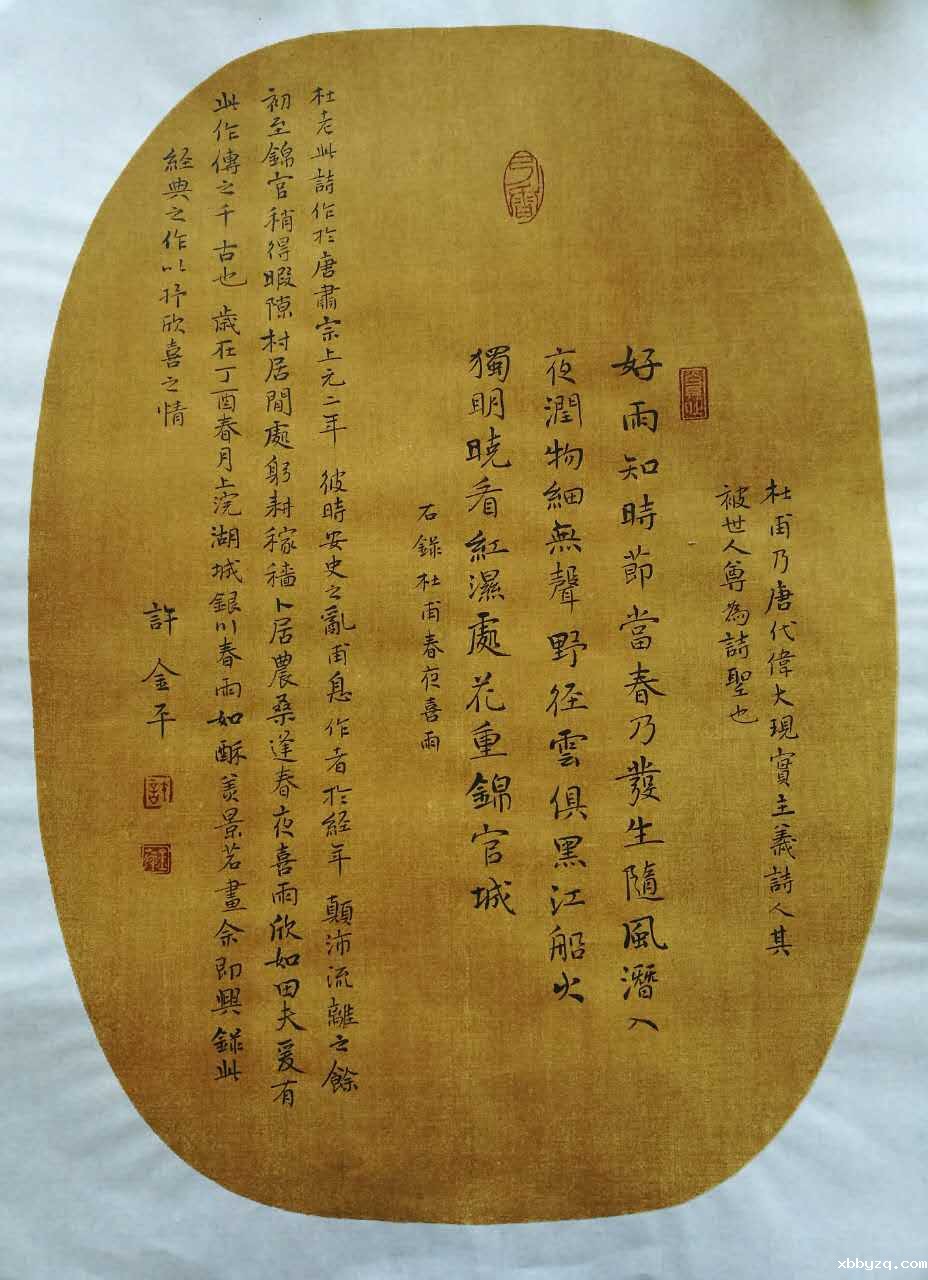 杜甫乃唐代偉大現實主義詩人其
被世人尊為詩聖也
好雨知時節當春乃發生隨風潛入
夜潤物細無聲野径雲俱黑江船火
獨明曉看紅濕處花重錦官城
石錄杜甫春夜喜雨
杜老此詩作於唐肅宗上元二年彼時安史之亂甫息作者於経年顛沛流離之餘
初至錦官稍得暇隙村居閒處躬耕稼穡卜居農桑逢春夜喜雨欣如田夫爰有
此作傳之千古也歲在丁酉春月上浣湖城銀川春雨如酥美景若畫余即興錄此
経典之作以抒欣喜之情
許金平
xbbyzq.com